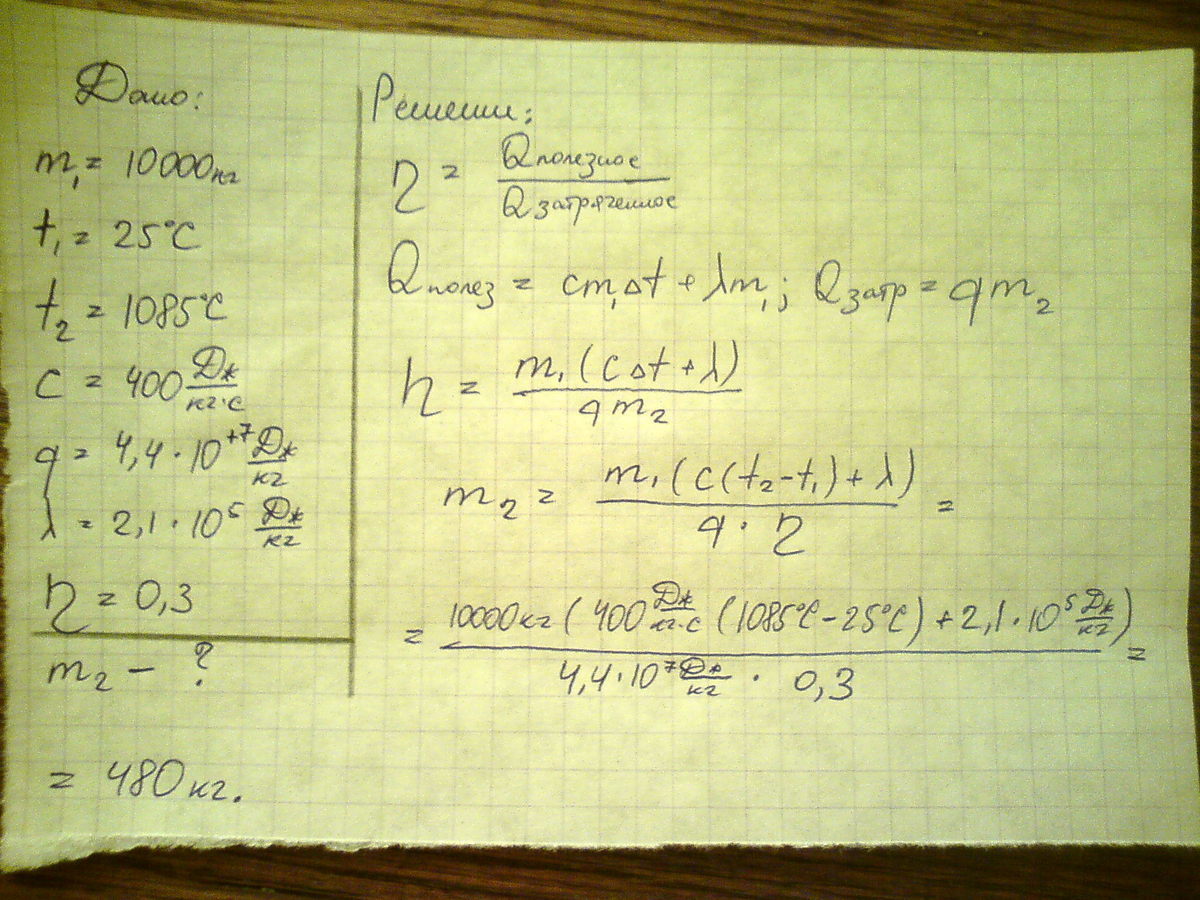 Дано:
m₁ = 10000кг
t₁ = 25°C
t₂ = 1085°C
c = 400 Дж/кг·с
q = 4,4·10⁺⁷ Дж/кг
λ = 2,1·10⁵ Дж/кг
η = 0,3
m₂ — ?
Решение:
η = Qполезное/Qзатраченное
Qполез = cm₁Δt + λm₁; Qзатр = qm₂
η = m₁(cΔt + λ)/qm₂
m₂ = m₁(c(t₂-t₁) + λ)/q·η =
= 10000кг(400 Дж/кг·с (1085°C - 25°C) + 2,1·10⁵ Дж/кг)/4,4·10⁷ Дж/кг · 0,3 =
= 480кг.